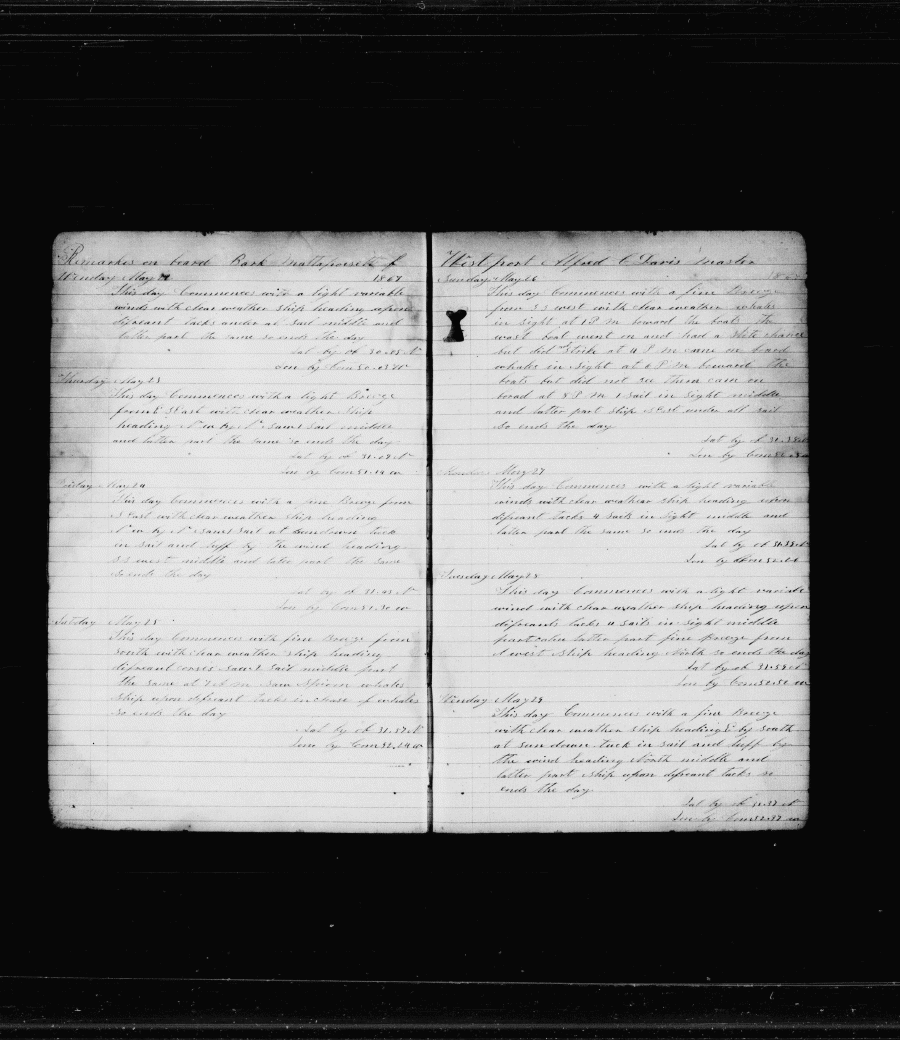 Remarks on board Bark Mattapoisett of
Wenday May 1867
This day Commences with a light variable
winds with clear weather ship heading upon
difreant tacks under all sail middle and
latter part the same so ends the day
Lat by ob 30.05 N
Lon by Crom 50.03 W
Thursday May 23
This day Commences with a light Breeze
from S East with clear weather ship
heading N W by N saw 1 sail middle
and latter part the same so ends the day
Lat by ob 31.09 N
Lon by Crom 51.14 W
Friday May 24
This day Commences with a fine Breeze from
S East with clear weather ship heading
N W by N saw 1 sail at sundown took
in sail and luff by the wind heading
S S west middle and later part the same
so ends the day
Lat by ob N
Lon by Crom 51.30 W
Satday May 25
This day Commences with fine Breeze from
South with clear weather ship heading
difreant corses saw 1 sail middle part
the same at 7 A M saw Sperm whales
ship upon difreant tacks in chase of whales
so ends the day
Lat by ob 31.57 N
Lon by Crom 52.24 W
West port Alfred C Davis master
Sunday May 26
This day Commences with a fine Breeze
from S S west with clear weather whales
in sight at 1 P M lowerd the boats the
wast boat went on and had a chance
but did not strike at 4 P M came on board
whales in sight at 6 P M lowerd the
boats but did not see them cam on
borad at 8 P M 1 sail in sight middle
and latter part ship N Est under all sail
so ends the day
Lat by ob 31.38 N
Lon by Crom
Monday May 27
This day Commences with a light variable
winds with clear weather ship heading upon
difreant tacks 4 sails in sight middle and
latter part the same so ends the day
Lat by ob N
Lon by Crom 52.26
Tuesday May 28
This day Commences with a light variable
wind with clear weather ship heading upon
difreants tacks 4 sails in sight middle
part calm latter part fine Breeze from
S west ship heading North so ends the day
Lat by ob 31.59 N
Lon by Crom 52.52 W
Wenday May 29
This day Commences with a fine Breeze
with clear weather ship heading E by South
at sun down tuck in sail and luff by
the wind heading South middle and
latter part ship upon difreant tacks so
ends the day
Lat by ob N
Lon by Crom 52.37 W